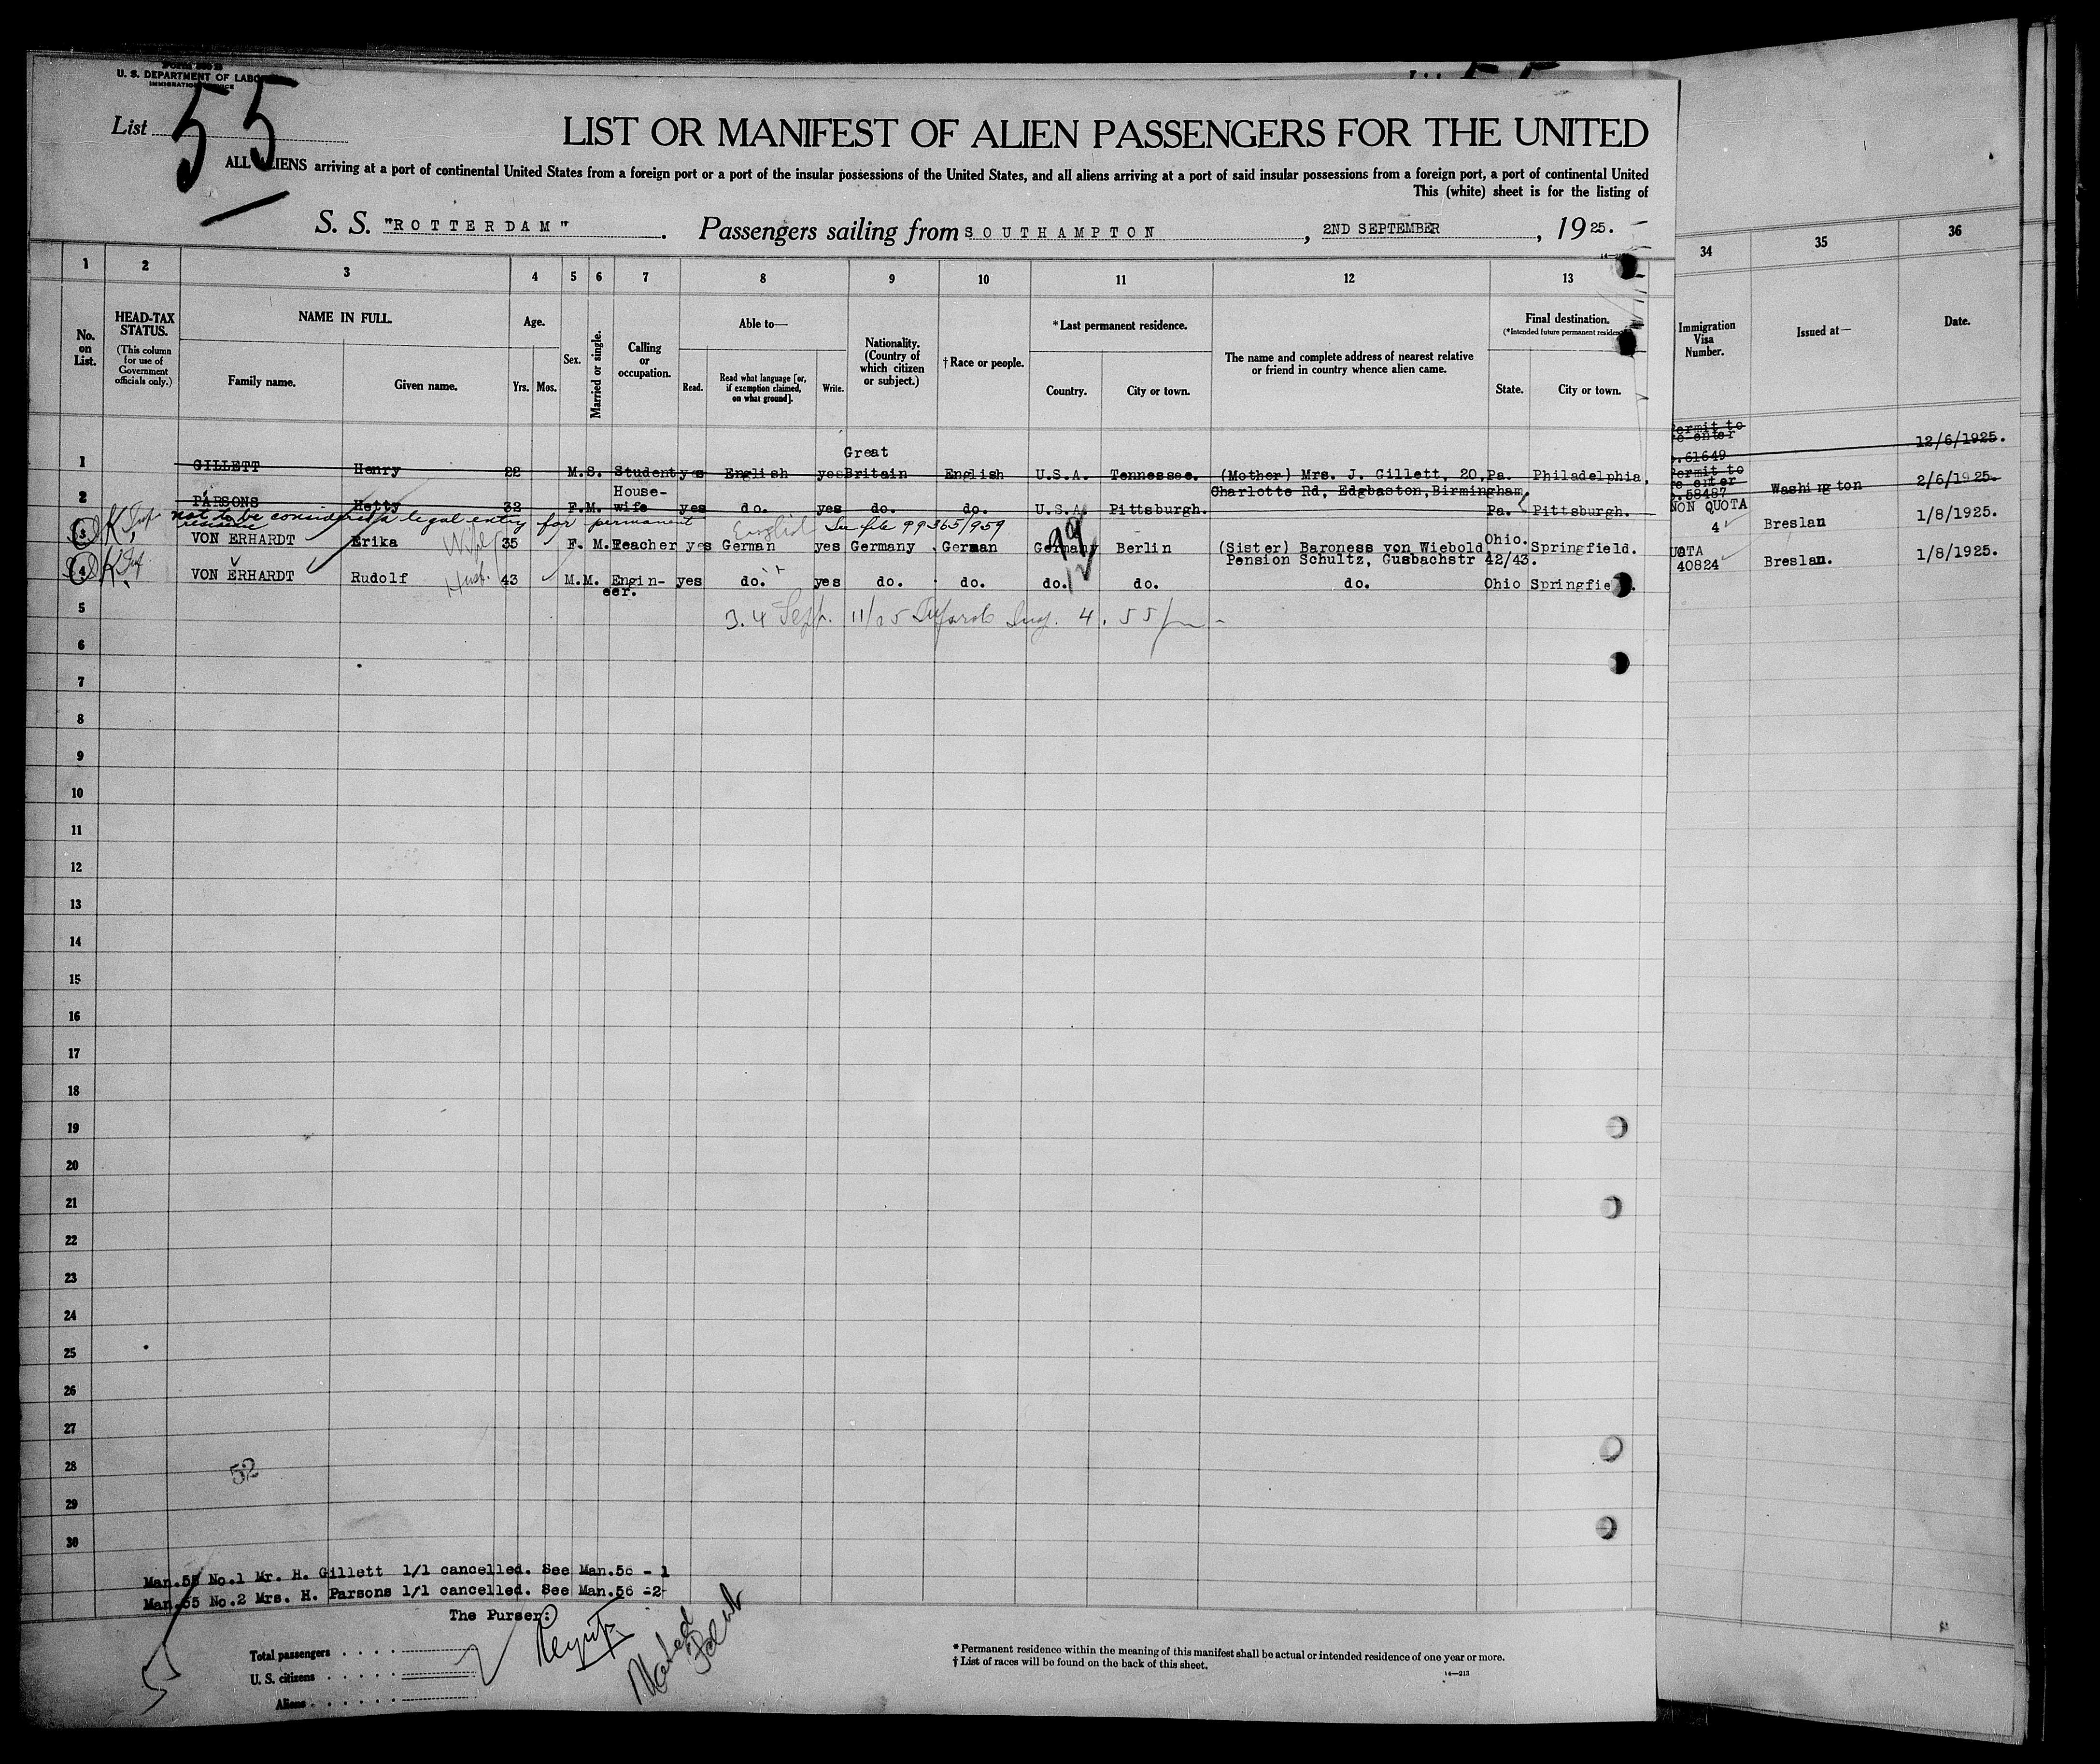 Form 500 B
U. S. DEPARTMENT OF LABOR
IMMIGRATION SERVICE
List 55
LIST OR MANIFEST OF ALIEN PASSENGERS FOR THE UNITED
ALL ALIENS arriving at a port of continental United States from a foreign port or a port of the insular possessions of the United States, and all aliens arriving at a port of said insular possessions from a foreign port, a port of continental United
This (white) sheet is for the listing of
S. S. "ROTTERDAM". Passengers sailing from SOUTHAMPTON, 2ND SEPTEMBER, 1925.
1 2 3 4 5 6 7 8 9 10 11 12 13 34 35 36
No. on List.
HEAD-TAX STATUS.
(This column for use of Government officials only.)
NAME IN FULL.
Family name. Given name.
Age.
Yrs. Mos.
Sex.
Married or single.
Calling or occupation.
Able to—
Read. Read what language [or, if exemption claimed, on what ground]. Write.
Nationality. (Country of which citizen or subject.)
†Race or people.
*Last permanent residence.
Country. City or town.
The name and complete address of nearest relative or friend in country whence alien came.
Final destination.
(*Intended future permanent residence)
State. City or town.
Immigration Visa Number.
Issued at—
Date.
Great
1 GILLETT Henry 22 M. S. Student yes English yes Britain English U.S.A. Tennessee. (Mother) Mrs. J. Gillett, 20, Pa. Philadelphia, Permit to re-enter .61649 12/6/1925.
House- Charlotte Rd, Edgbaston, Birmingham
2 PARSONS Hetty 32 F. M. wife yes do. yes do. do. U.S.A Pittsburgh. Pa. Pittsburgh. Permit to re-enter .58487 Washington 2/6/1925.
not to be considered a legal entry for permanent residence English See file 99365/959
3 VON ERHARDT Erika Wife 35 F. M. Teacher yes German yes Germany German Germany Berlin (Sister) Baroness von Wiebold Ohio. Springfield. NON QUOTA 4 Breslan 1/8/1925.
Pension Schultz, Gusbachstr 42/43.
4 VON ERHARDT Rudolf Husb. 43 M. M. Engin- yes do. yes do. do. do. do. do. Ohio Springfie 40824 Breslan. 1/8/1925.
eer.
5 3. 4 Sept. 11/25
6
7
8
9
10
11
12
13
14
15
16
17
18
19
20
21
22
23
24
25
26
27
28
52
29
30
Man.55 No.1 Mr. H. Gillett 1/1 cancelled. See Man.56 - 1
Man.55 No.2 Mrs. H. Parsons 1/1 cancelled. See Man.56 -2-
The Purser:
Total passengers
U. S. citizens
Aliens
* Permanent residence within the meaning of this manifest shall be actual or intended residence of one year or more.
† List of races will be found on the back of this sheet.
14—213